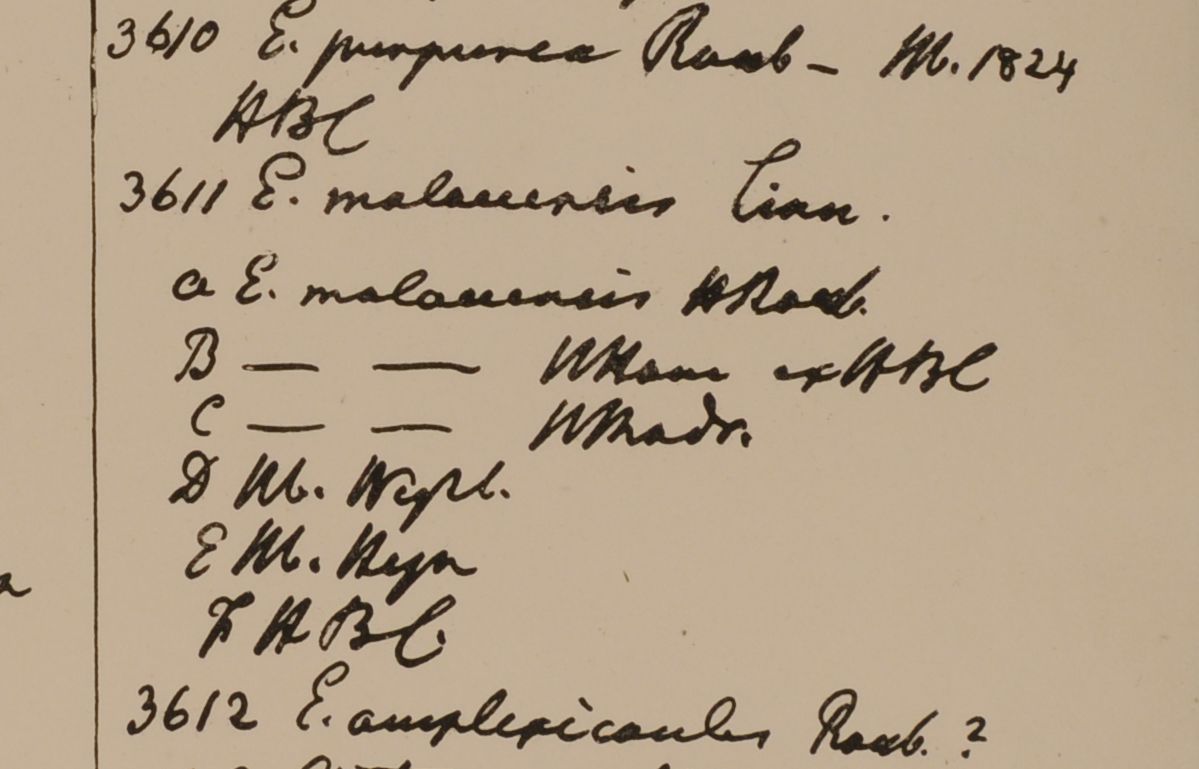 3610 E. purpurea Roxb – Hb. 1824
HBC
3611 E. malaccensis Linn.
a E. malaccensis HRoxb.
B — — HHam ex HBC
C — — HMadr.
D Hb. Wight.
E Hb. Heyn
F HBC.
3612 E. amplexicaulis Roxb. ?